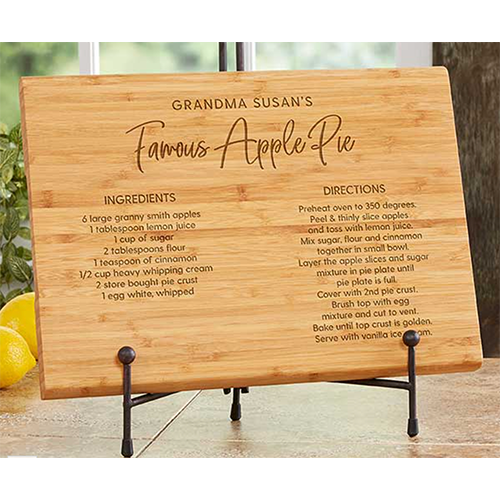 GRANDMA SUSAN'S
Famous Apple Pie
INGREDIENTS
6 large granny smith apples
1 tablespoon lemon juice
1 cup of sugar
2 tablespoons flour
1 teaspoon of cinnamon
1/2 cup heavy whipping cream
2 store bought pie crust
1 egg white, whipped
DIRECTIONS
Preheat oven to 350 degrees.
Peel & thinly slice apples
and toss with lemon juice.
Mix sugar, flour and cinnamon
together in small bowl.
Layer the apple slices and sugar
mixture in pie plate until
pie plate is full.
Cover with 2nd pie crust.
Brush top with egg
mixture and cut to vent.
Bake until top crust is golden.
Serve with vanilla ice cream.